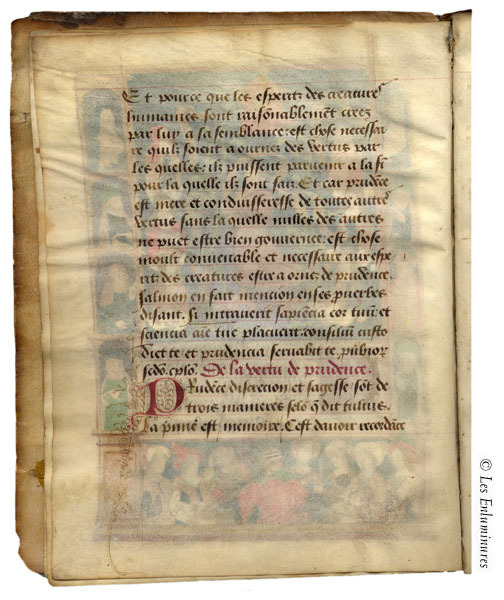 Et pource que les esperitz des creatures
humaines sont raisonablement creez
par luy a sa semblance: est chose necessai
re quilz soient aournez des vertus par
les quelles: ilz puissent parvenir a la fi
pour la quelle ilz sont faiz. Et car prudēce
est mere et conduisseresse de toutes autres
vertus sans la quelle nulles des autres
ne puet estre bien gouvernee: est chose
moult convenable et necessaire aux espe
ritz des creatures estre aornez de prudence.
Salmon en fait mencion en ses proverbes
disant. Si intraverit sapiēcia cor tuum et
sciencia aīe tue placuerit: consilium custo
diet te et prudencia servabit te. prūbior
sedō. cplo. De la vertu de prudence.
Prudēce discrecion et sagesse sōt de
trois manieres selō q̄ dit tulius.
La p̄mie est memoire. Cest davoir recordāce
© Les Enluminures